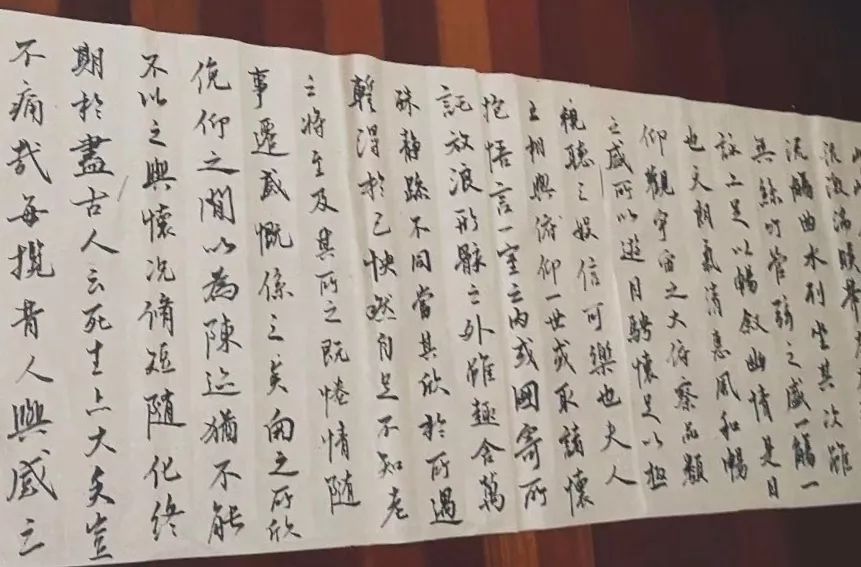 流激湍暎帶
流觴曲水列坐其次雖
無絲竹管弦之盛一觴一
詠亦足以暢敘幽情是日
也天朗氣清惠風和暢
仰觀宇宙之大俯察品類
之盛所以遊目騁懷足以極
視聽之娛信可樂也夫人
之相與俯仰一世或取諸懷
抱悟言一室之內或因寄所
託放浪形骸之外雖趣舍萬
殊静躁不同當其欣於所遇
蹔得於己怏然自足不知老
之將至及其所之既惓情隨
事遷感慨係之矣向之所欣
俛仰之閒以為陳迹猶不能
不以之興懷況脩短隨化終
期於盡古人云死生亦大矣豈
不痛哉每攬昔人興感之